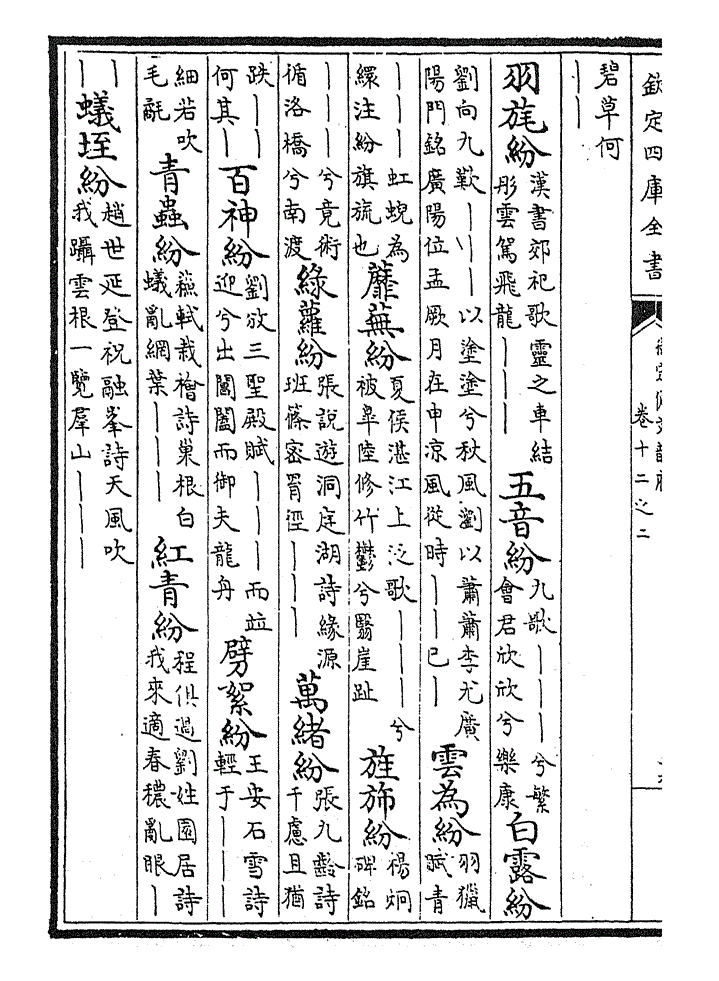 欽定四庫全書
卷十二之二
碧草何
｜｜
羽旄紛
漢書郊祀歌靈之車結
彤雲駕飛龍｜｜｜
五音紛
九歌｜｜｜兮繁
會君欣欣兮樂康
白露紛
劉向九歎｜｜｜以塗塗兮秋風劉以蕭蕭李尤廣
陽門銘廣陽位孟厥月在申涼風從時｜｜已｜
雲為紛
羽獵
賦青
｜｜｜虹蜺為
繯注紛旗旒也
蘼蕪紛
夏侯湛江上泛歌｜｜｜兮
被皐陸修竹鬱兮翳崖趾
旌斾紛
楊炯
碑銘
｜｜｜兮竟術
循洛橋兮南渡
綠蘿紛
張說遊洞庭湖詩緣源
班篠密罥徑｜｜｜
萬緒紛
張九齡詩
千慮且猶
跌｜｜
何其｜
百神紛
劉攽三聖殿賦｜｜｜而竝
迎兮出閶闔而御夫龍舟
劈絮紛
王安石雪詩
輕于｜｜｜
細若吹
毛氄
青蟲紛
蘇軾栽檜詩巢根白
蟻亂網葉｜｜｜
紅青紛
程俱過劉姓園居詩
我來適春穠亂眼｜
｜
｜
蟻垤紛
趙世延登祝融峯詩天風吹
我躡雲根一覽羣山｜｜｜